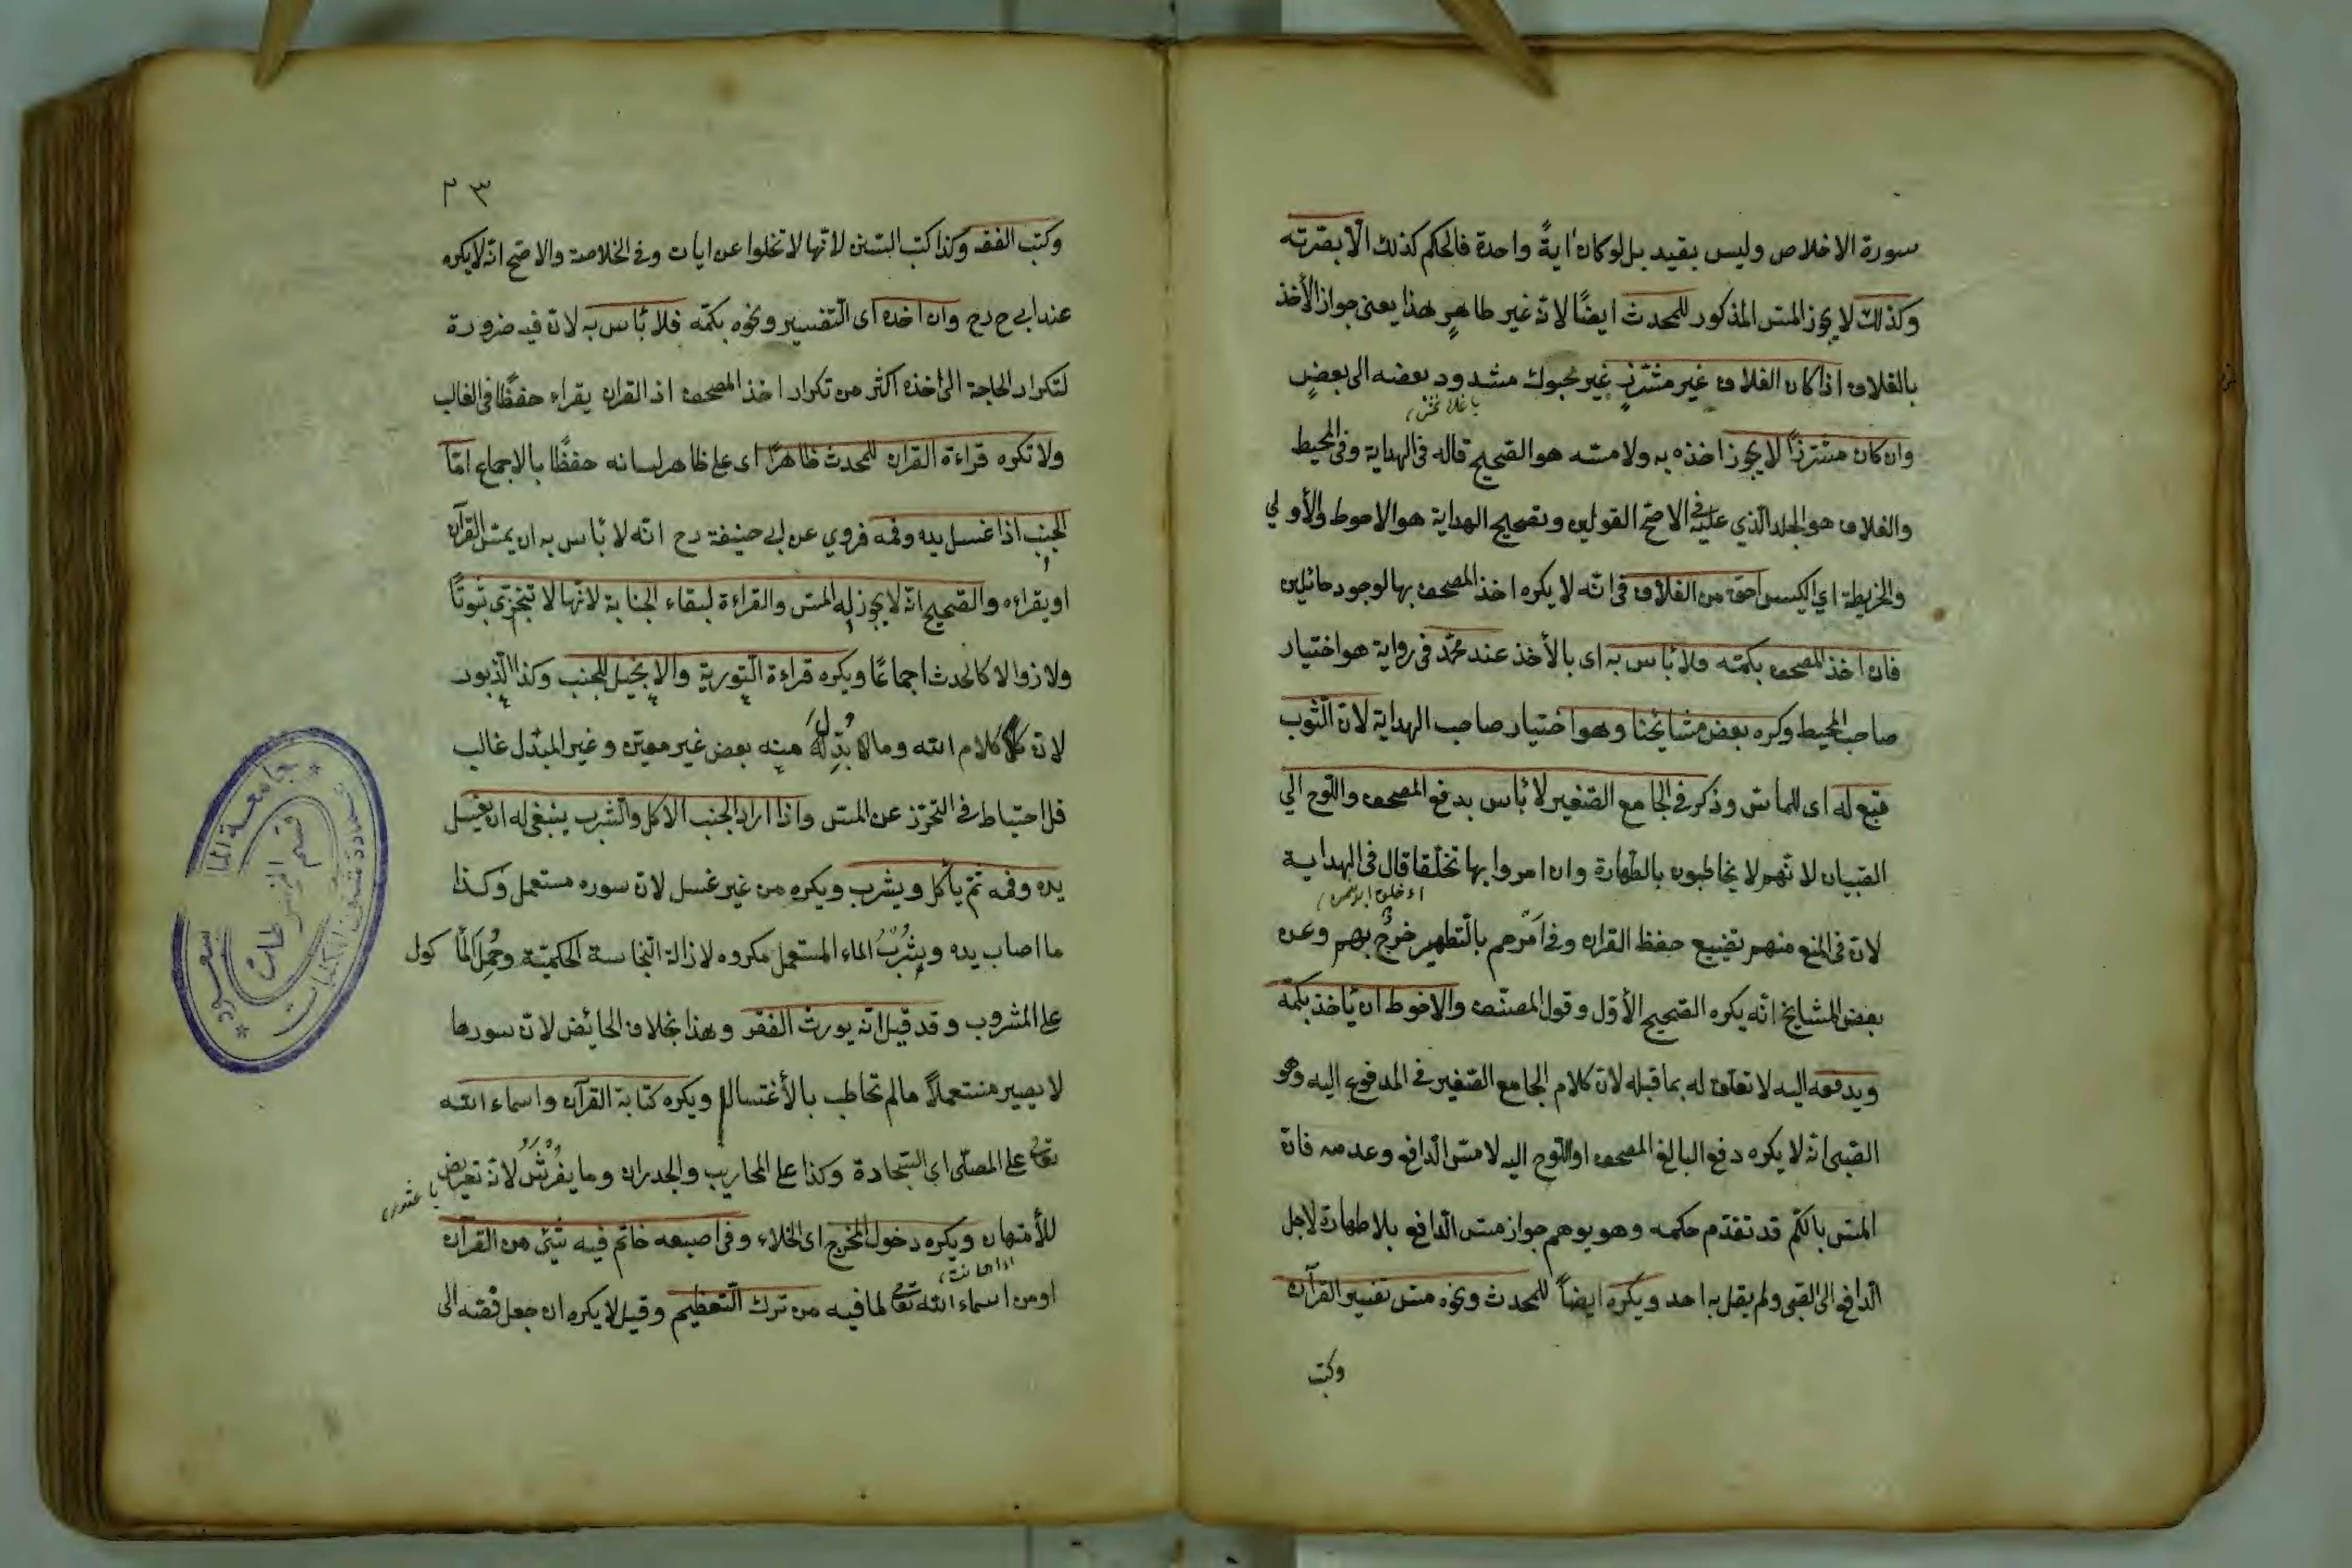 سورة الاخلاص وليس بقيد بل لو كان اٰيةً واحدة فالحكم كذلك الّا بصرّته
وكذلك لا يجوز المسّ المذكور للمحدث ايضًا لانّه غير طاهرٍ هذا يعنى جواز الأخذ
بالغلاف اذا كان الغلاف غير مشرّزٍ غير محبوك مشدود بعضه الى بعضٍ
وان كان مشرّزاً لا يجوز اخذه به ولا مسّه هو الصّحيح قاله فى الهداية وفى المحيط
والغلاف هو الجلد الّذي عليه فى الاصحّ القولين وتصحيح الهداية هو الاحوط والأولي
والخريطة اي الكيس احقّ من الغلاف فى انّه لا يكره اخذ المصحف بها لوجود حائلين
فان اخذ المصحف بكمّه ولا بأس به اى بالأخذ عند محمّد فى رواية هو اختيار
صاحب المحيط وكره بعض مشايخنا وهو اختيار صاحب الهداية لانّ الثّوب
تبع له اى للماسّ وذكر فى الجامع الصّغير لا بأس بدفع المصحف واللّوح الي
الصّبيان لانّهم لا يخاطبون بالطّهارة وان امروا بها تخلّقا قال فى الهداية
لانّ فى المنع منهم تضييع حفظ القران وفى امْرهم بالتّطهير حَرَجٌ بهم وعن
بعض المشايخ انّه يكره الصّحيح الأوّل وقول المصنّف والاحوط ان يأخذ بكمّه
ويدفعه اليه لا تعلّق له بما قبله لانّ كلام الجامع الصّغير فى المدفوع اليه وهو
الصّبىّ انّه لا يكره دفع البالغ المصحف او اللّوح اليه لا مسّ الدّافع وعدمه فانّ
المسّ بالكمّ قد تقدّم حكمه وهو يوهم جواز مسّ الدّافع بلا طهارة لاجل
الدّافع الى الصّبى ولم يقل به احد ويكره ايضاً للمحدث ونحوه مسّ تفسير القرآن
وكتب
٢٣
وكتب الفقه وكذا كتب السّنن لانّها لا تخلوا عن ايات وفى الخلاصة والاصحّ انّه لا يكره
عند ابى ح رح وان اخذه اى التّفسير ونحوه بكمّه فلا بأس به لانّ فيه ضرورة
لتكرار الحاجة الى اخذه اكثر من تكرار اخذ المصحف اذ القران يقراء حفظًا فى الغالب
ولا تكره قراءة القران للمحدث ظاهرًا اى على ظاهر لسانه حفظًا بالاجماع امّا
الجنب اذا غسل يده وفمه فروي عن ابى حنيفة رح انّه لا بأس به ان يمسّ القرآن
او يقراءه والصّحيح انّه لا يجوز له المسّ والقراءة لبقاء الجنابة لانّها لا تتجزّى ثبوتًا
ولا زوالا كالحدث اجماعًا ويكره قراءة التّورية والانجيل للجنب وكذا الزّبور
لانّ كلام الله وما بدّل منه بعض غير معيّن وغير المبدّل غالب
فالاحتياط فى التّحرّز عن المسّ واذا اراد الجنب الاكل والشّرب ينبغى له ان يغسل
يده وفمه ثمّ يأكل ويشرب ويكره من غير غسل لانّ سوره مستعمل وكذا
ما اصاب يده ويشُرْبُ الماء المستعمل مكروه لازالة النّجاسة الحكميّة وحُمِلَ المأكول
على المشروب وقد قيل انّه يورث الفقر وهذا بخلاف الحائض لانّ سورها
لا يصير مستعملاً مالم تخاطب بالأغتسال ويكره كتابة القرآن واسماء الله
تعالى على المصلّى اى السّجادة وكذا على المحاريب والجدران وما يفْرَشُ لانّه تعريض
للأمتهان ويكره دخول المخرج اى الخلاء وفى اصبعه خاتم فيه شئ من القرآن
او من اسماء الله تعالى لما فيه من ترك التّعظيم وقيل لا يكره ان جعل فصّه الى